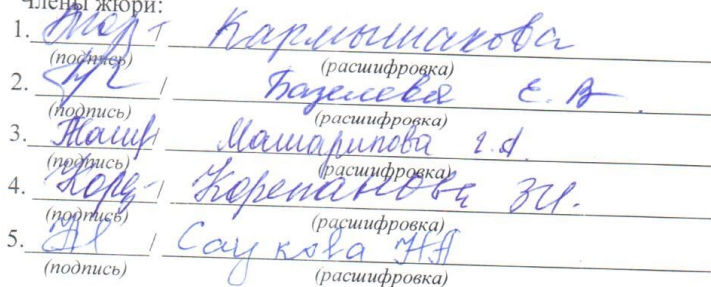 Члены жюри:
1. / Кармышакова
(подпись) (расшифровка)
2. / Базелева Е. В.
(подпись) (расшифровка)
3. / Машарипова г. А.
(подпись) (расшифровка)
4. / Корепанова ЗИ.
(подпись) (расшифровка)
5. / Саукова НА
(подпись) (расшифровка)